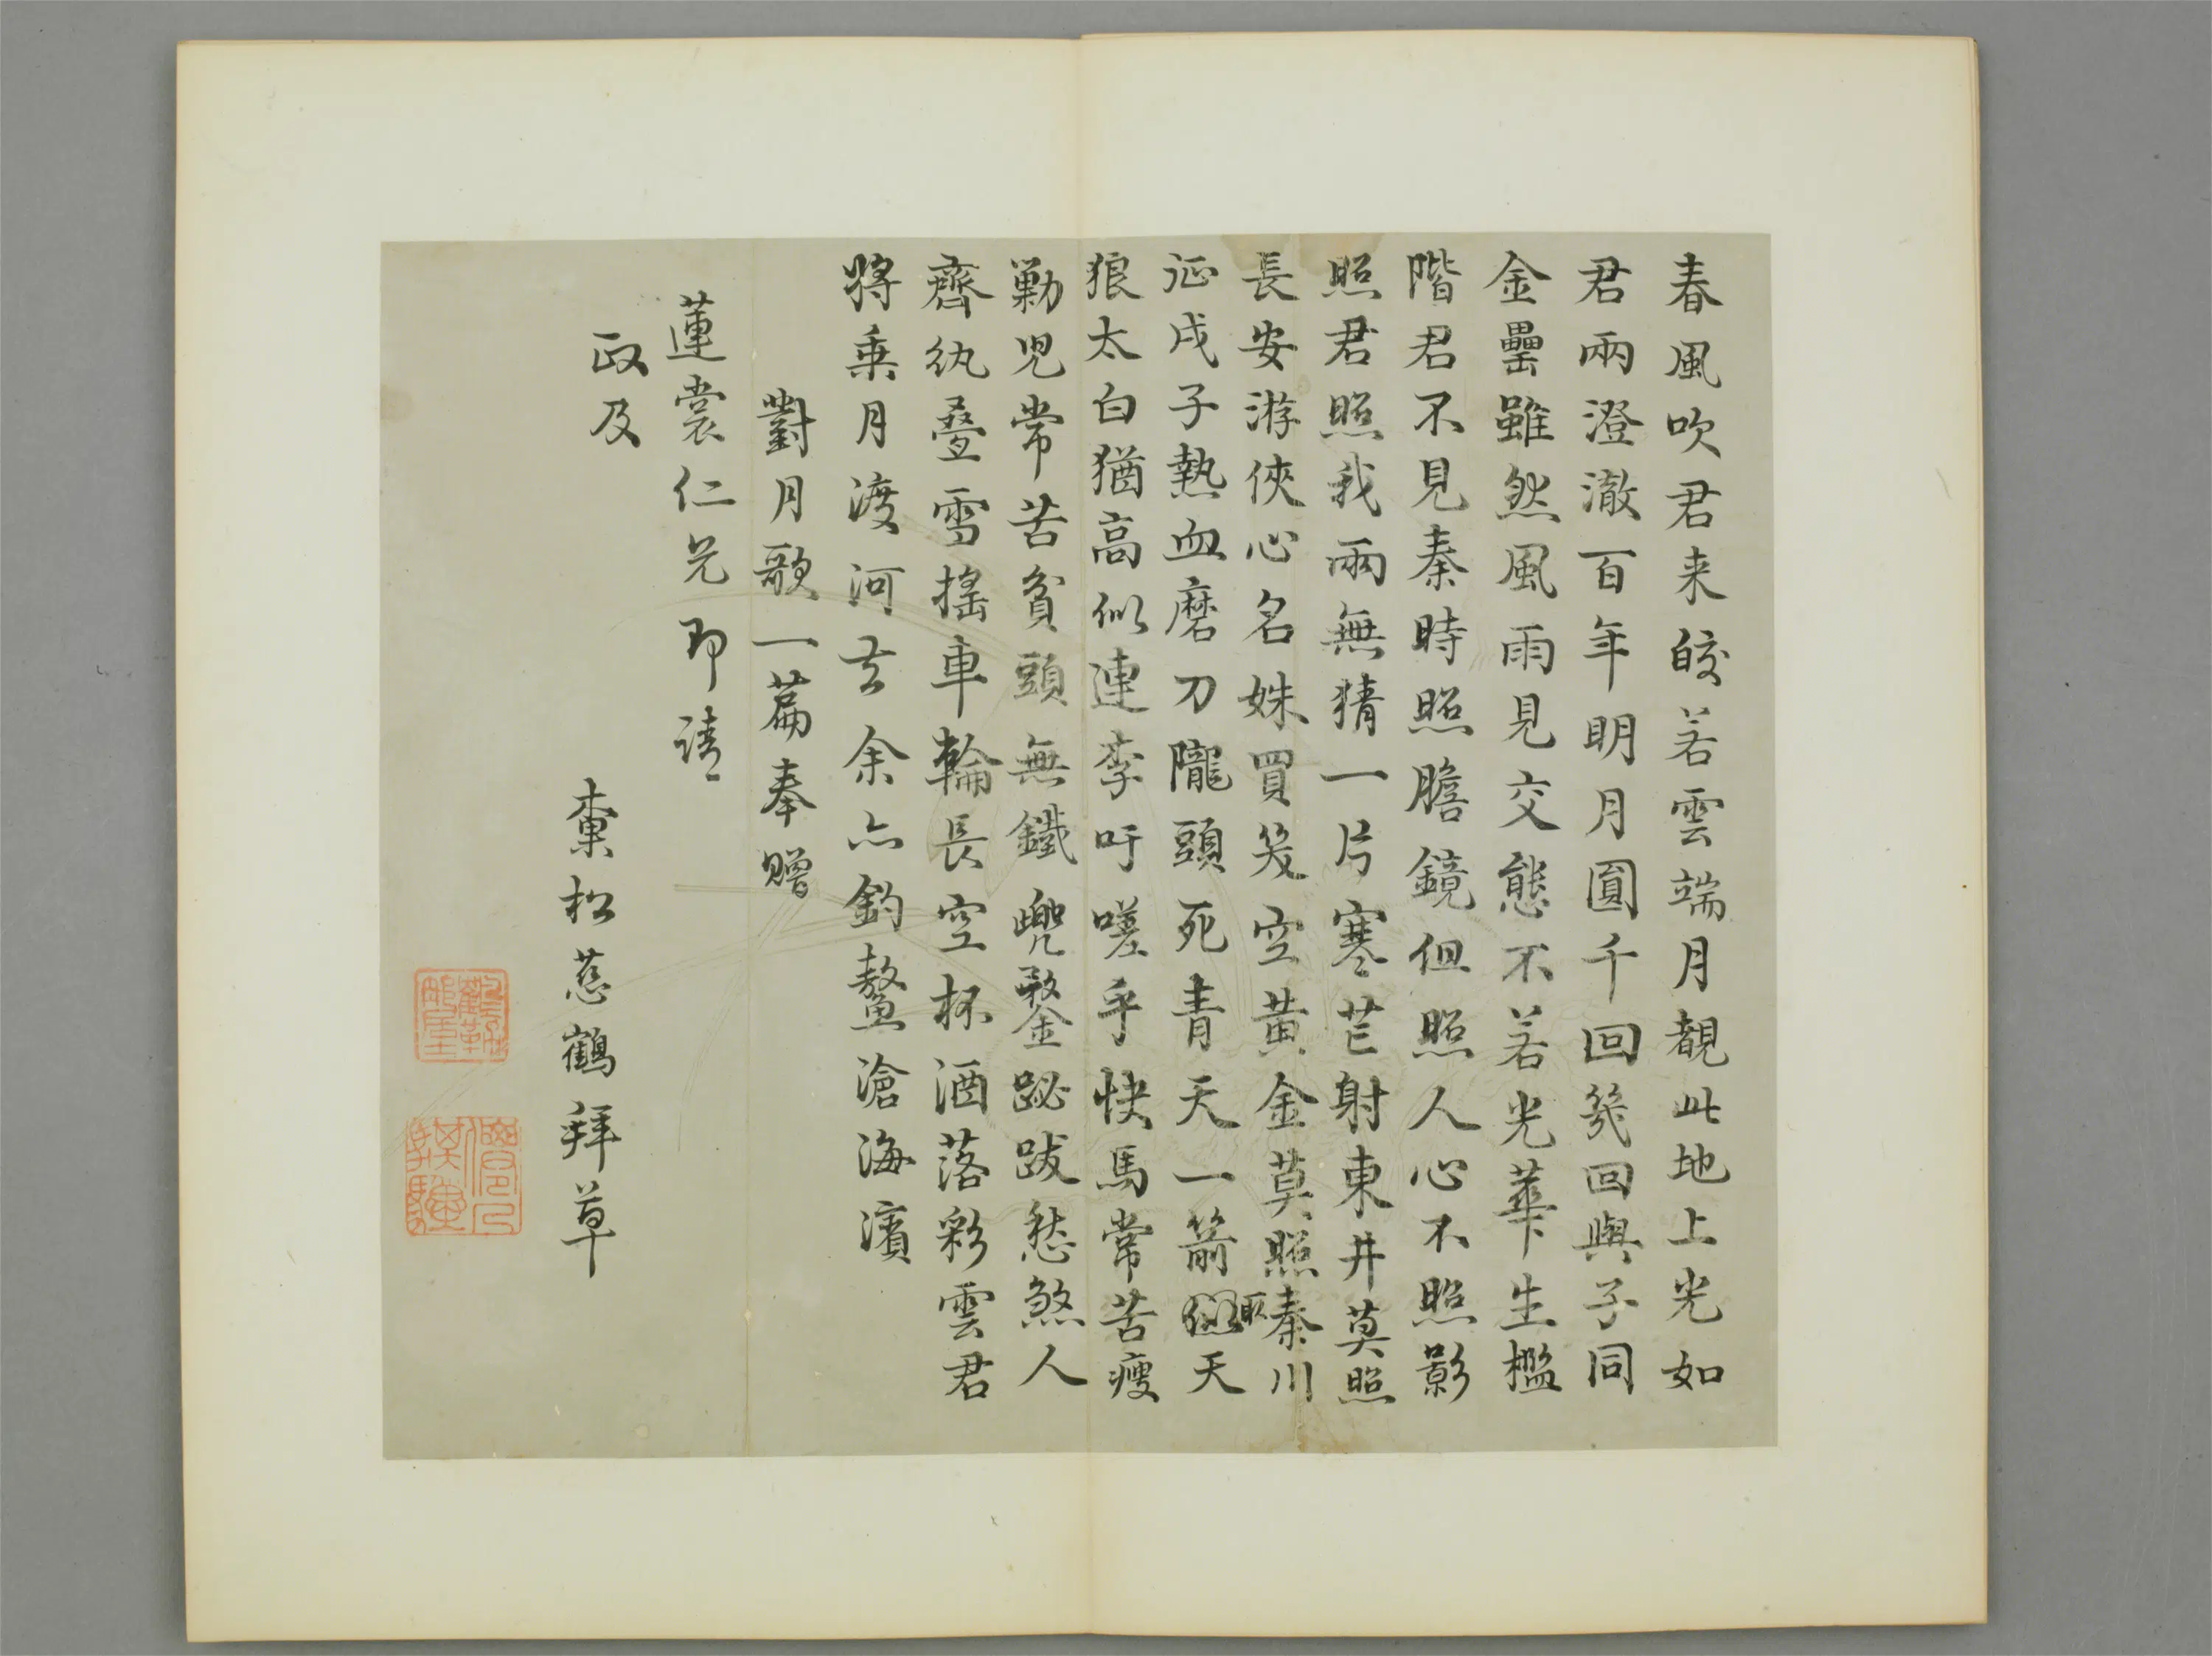 春風吹君来皎若雲端月覩此地上光如
君兩澄澈百年明月圓千回幾回與子同
金罍雖然風雨見交態不若光華生檻
階君不見秦時照膽鏡但照人心不照影
照君照我兩無猜一片寒芒射東井莫照
長安游俠心名姝買笑空黃金莫照秦川
征戍子熱血磨刀隴頭死青天一箭取天
狼太白猶高似連李吁嗟乎快馬常苦瘦
勤児常苦貧頭無鐵兜鍪跋愁煞人
齊紈疊雪搖車輪長空杯酒落彩雲君
將乗月渡河去余亦釣鰲滄海濱
對月歌一篇奉贈
蓮裳仁兄即請
政及
松慈鶴拜草